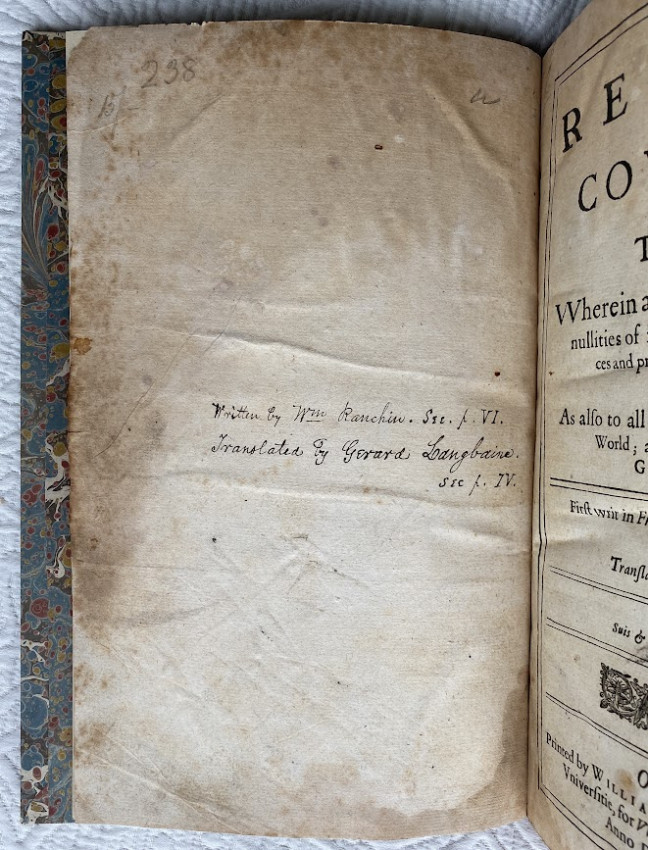 238
Written by Wm Ranchin. See. p. VI.
Translated by Gerard Langbaine.
see p. IV.
RE
CO
T
Wherein a
nullities of
ces and pr
As also to all
World; a
G
First writ in F
Transla
Suis &
O
Printed by WILLIA
Vniversitie, for
Anno